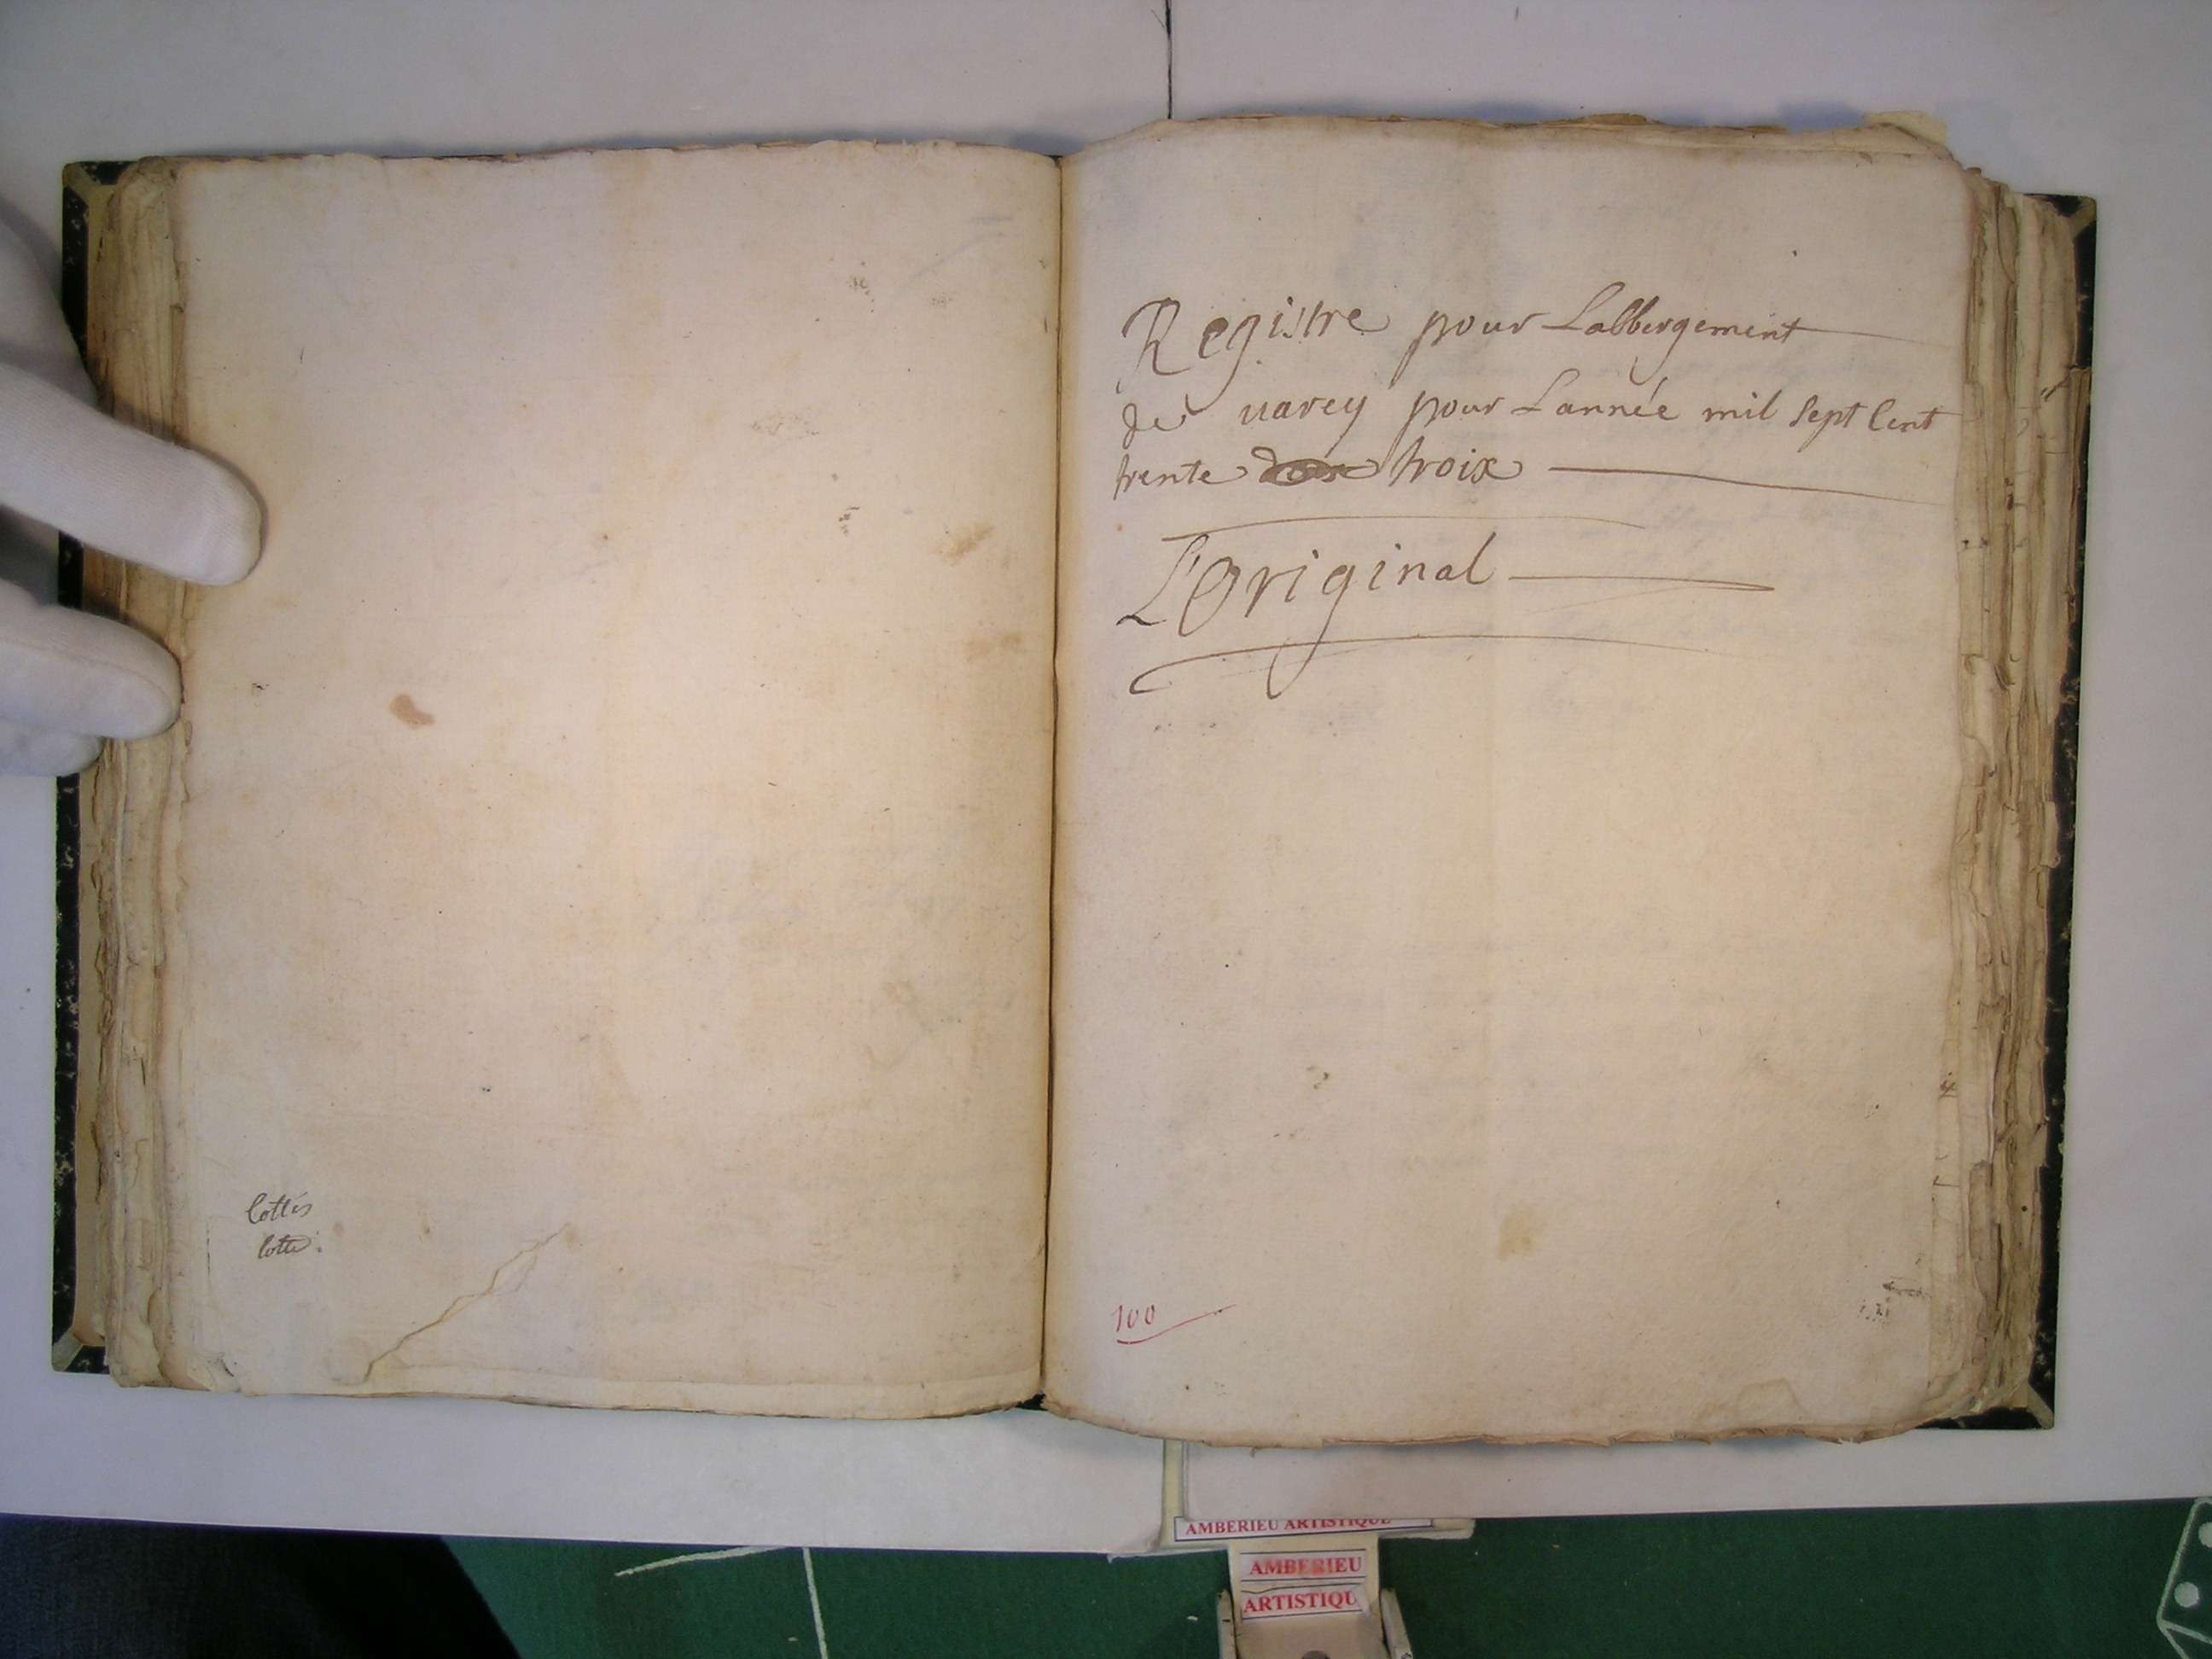 Registre pour Labbergement
de varey pour Lannée mil sept Cent
trente troix
L'Original
100
AMBERIEU ARTISTIQUE
AMBERIEU
ARTISTIQU